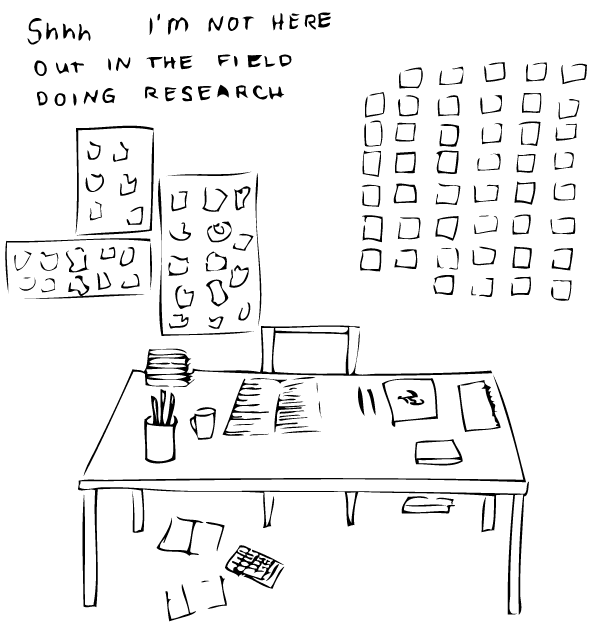 Shhh I'M NOT HERE
OUT IN THE FIELD
DOING RESEARCH